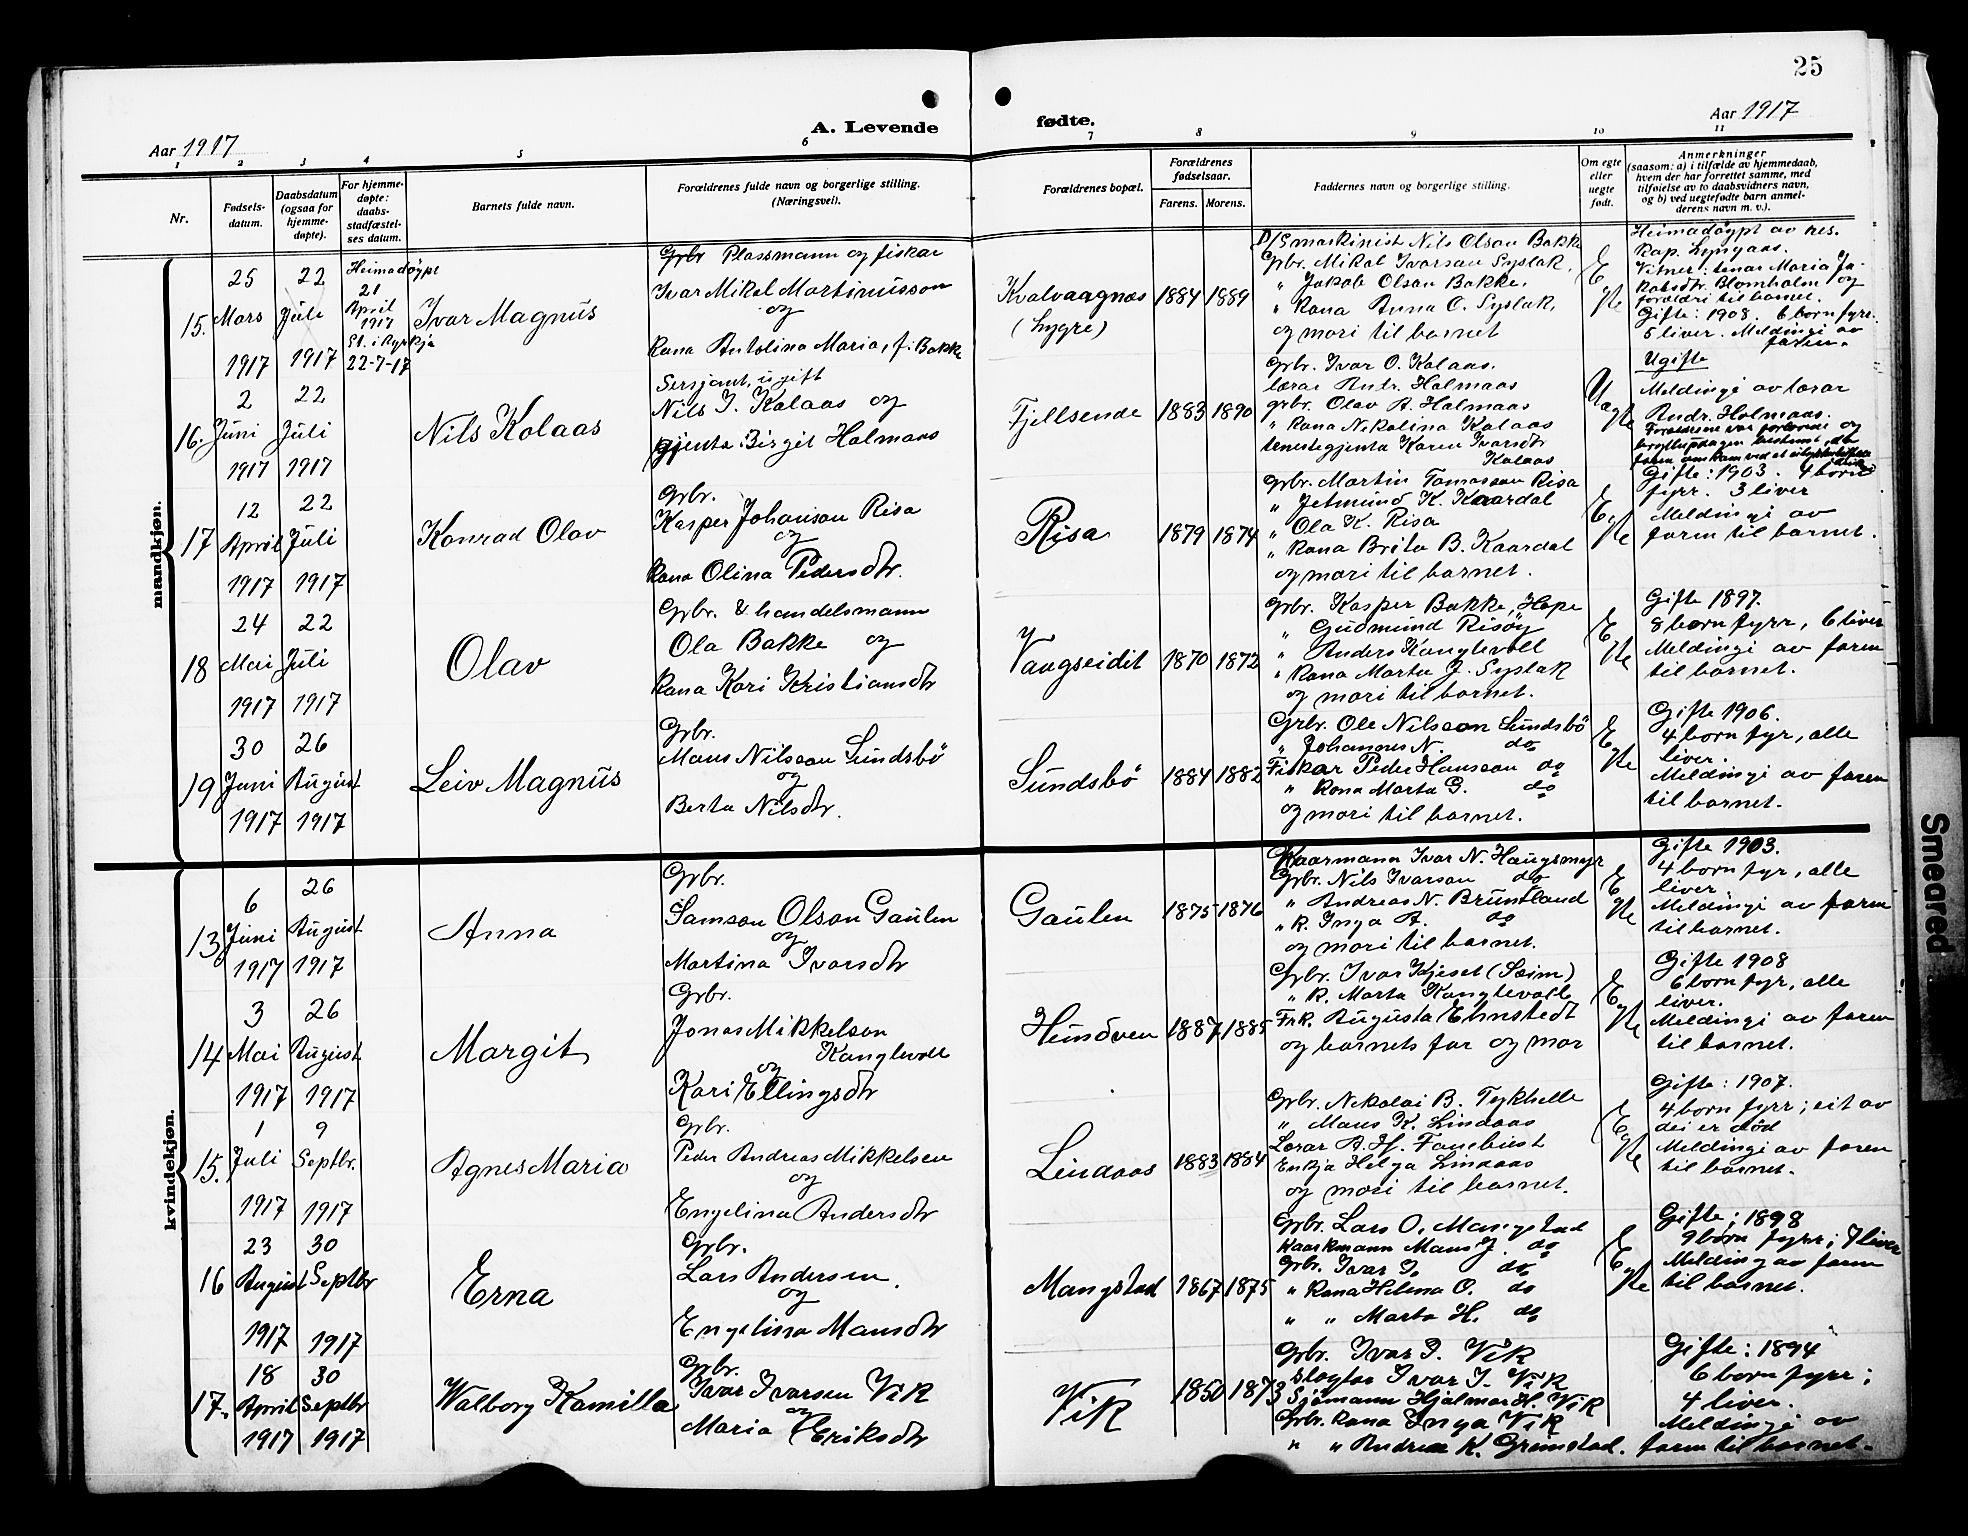 25
Aar 1917
A. Levende
fødte.
Aar 1917
1 2 3 4 5 6 7 8 9 10 11
Nr.
Fødsels-
datum.
Daabsdatum
(ogsaa for
hjemme-
døpte).
For hjemme-
døpte:
daabs-
stadfæstel-
ses datum.
Barnets fulde navn.
Forældrenes fulde navn og borgerlige stilling.
(Næringsvei).
Forældrenes bopæl.
Forældrenes
fødselsaar.
Farens. Morens.
Faddernes navn og borgerlige stilling.
Om egte
eller
uegte
født.
Anmerkninger
(saasom: a) i tilfælde av hjemmedaab,
hvem der har forrettet samme, med
tilføielse av to daabsvidners navn,
og b) ved uegtefødte barn anmel-
derens navn m. v.).
mandkjøn.
15.
25
Mars
1917
22
Juli
1917
Heimadøypt
21
April
1917
St. i Kyrkja
22-7-17
Ivar Magnus
Grbr Plassmann og fiskar
Ivar Mikal Martinusson
og
Kona Antolina Maria, f. Bakke
Kvalvaagnes
(Lygre)
1884 1889
D/S maskinist Nils Olson Bakke
Grbr. Mikal Ivarson Syslak,
" Jakob Olson Bakke.
" Kona Anna O. Syslak,
og mori til barnet
Egte
Heimadøypt av res.
Kap. Lyngaas.
Vitner: tenar Maria Ja-
kobsdtr. Blomholm og
foreldri til barnet.
Gifte: 1908. 6 born fyrr.
5 liver. Meldingi av
faren.
16.
2
Juni
1917
22
Juli
1917
Nils Kolaas
Sersjant, ugift
Nils I. Kolaas og
gjenta Birgit Holmaas
Fjellsende
1883 1890
Grbr. Ivar O. Kolaas.
lærar Andr. Holmaas
grbr. Olav A. Holmaas
" Kona Nikolina Kolaas
tenestegjenta Karen Ivarsdtr
Kolaas
Uegte
Ugifte
Meldingi av lærar
Andr. Holmaas.
Foreldrene var forlovede og
bryllupsdagen bestemt, da
faren omkam ved et ulykkestilfælde
17
12
April
1917
22
Juli
1917
Konrad Olav
Grbr.
Kasper Johanson Risa
og
Kona Olina Pedersdtr.
Risa
1879 1874
Grbr. Martin Tomasson Risa
" Jetmund K. Kaardal
" Ola K. Risa
" Kona Brita B. Kaardal
og mori til barnet.
Egte
Gifte: 1903. 4 born
fyrr. 3 liver
Meldingi av
faren til barnet.
18
24
Mai
1917
22
Juli
1917
Olav
Grbr. & handelsmann
Ola Bakke og
Kona Kari Kristiansdtr
Vaagseidit
1870 1872
Grbr. Kasper Bakke, Hope
" Gudmund Risøy
" Anders Kanglevoll
" Kona Marta J. Syslak
og mori til barnet.
Egte
Gifte 1897.
8 born fyrr, 6 liver
Meldingi av faren
til barnet.
19
30
Juni
1917
26
August
1917
Leiv Magnus
Grbr.
Mons Nilsson Sundsbö
og
Berta Nilsdtr.
Sundsbö
1884 1882
Grbr. Ole Nilsson Sundsbö
" Johannes N. do
Fiskar Peder Hansson do
" Kona Marta G. do
og mori til barnet.
Egte
Gifte 1906.
4 born fyr, alle
liver.
Meldingi av faren
til barnet.
kvindekjøn.
13
6
Juni
1917
26
August
1917
Anna
Grbr.
Samson Olson Gaulen
og
Martina Ivarsdtr
Gaulen
1875 1876
Kaarmann Ivar N. Haugsmyr
Grbr. Nils Ivarson do
" Andreas N. Bruntland
" K. Inga A. do
og mori til barnet.
Egte
Gifte 1903.
4 born fyr, alle
liver.
Meldingi av faren
til barnet.
14
3
Mai
1917
26
August
1917
Margit
Grbr.
Jonas Mikkelson
Kanglevoll
og
Kari Ellingsdtr
Hundven
1887 1885
Grbr. Ivar Kjeset (Seim)
" K. Marta Kanglevoll
Frk. Augusta Ehnstedt
og barnets far og mor
Egte
Gifte 1908
6 born fyr, alle
liver.
Meldingi av faren
til barnet.
15.
1
Juli
1917
9
Septbr.
1917
Agnes Maria
Grbr.
Peder Andreas Mikkelsen
og
Engelina Andersdtr
Lindaas
1883 1884
Grbr. Nikolai B. Tykhelle
" Mons K. Lindaas
Lærar A. H. Fanebust
Enkja Helga Lindaas
og mori til barnet.
Egte
Gifte: 1907.
4 born fyrr; eit av
dei er död
Meldingi av faren
til barnet.
16
23
August
1917
30
Septbr
1917
Erna
Grbr.
Lars Andersen.
og
Engelina Monsdtr
Mangstad
1867 1875
Grbr. Lars O. Mangstad
Kaarkmann Mons J. do
Grbr. Ivar I. do
" Kona Helena O. do
" " Marta H. do
Egte
Gifte: 1898
9 born fyrr; 7 liver
Melding av faren
til barnet.
17.
18
April
1917
30
Septbr
1917
Walborg Kamilla
Grbr.
Ivar Ivarsen Vik
og
Maria Eriksdtr
Vik
1850 1873
Grbr. Ivar I. Vik
slogtar Ivar I. Vik
Sjømann Hjalmar H. Vik
Grbr. Kona Inga Vik
" " Andrea K. Grimstad.
Gifte: 1894
6 born fyrr;
4 liver.
Meldingi av
faren til barnet.
Smeared